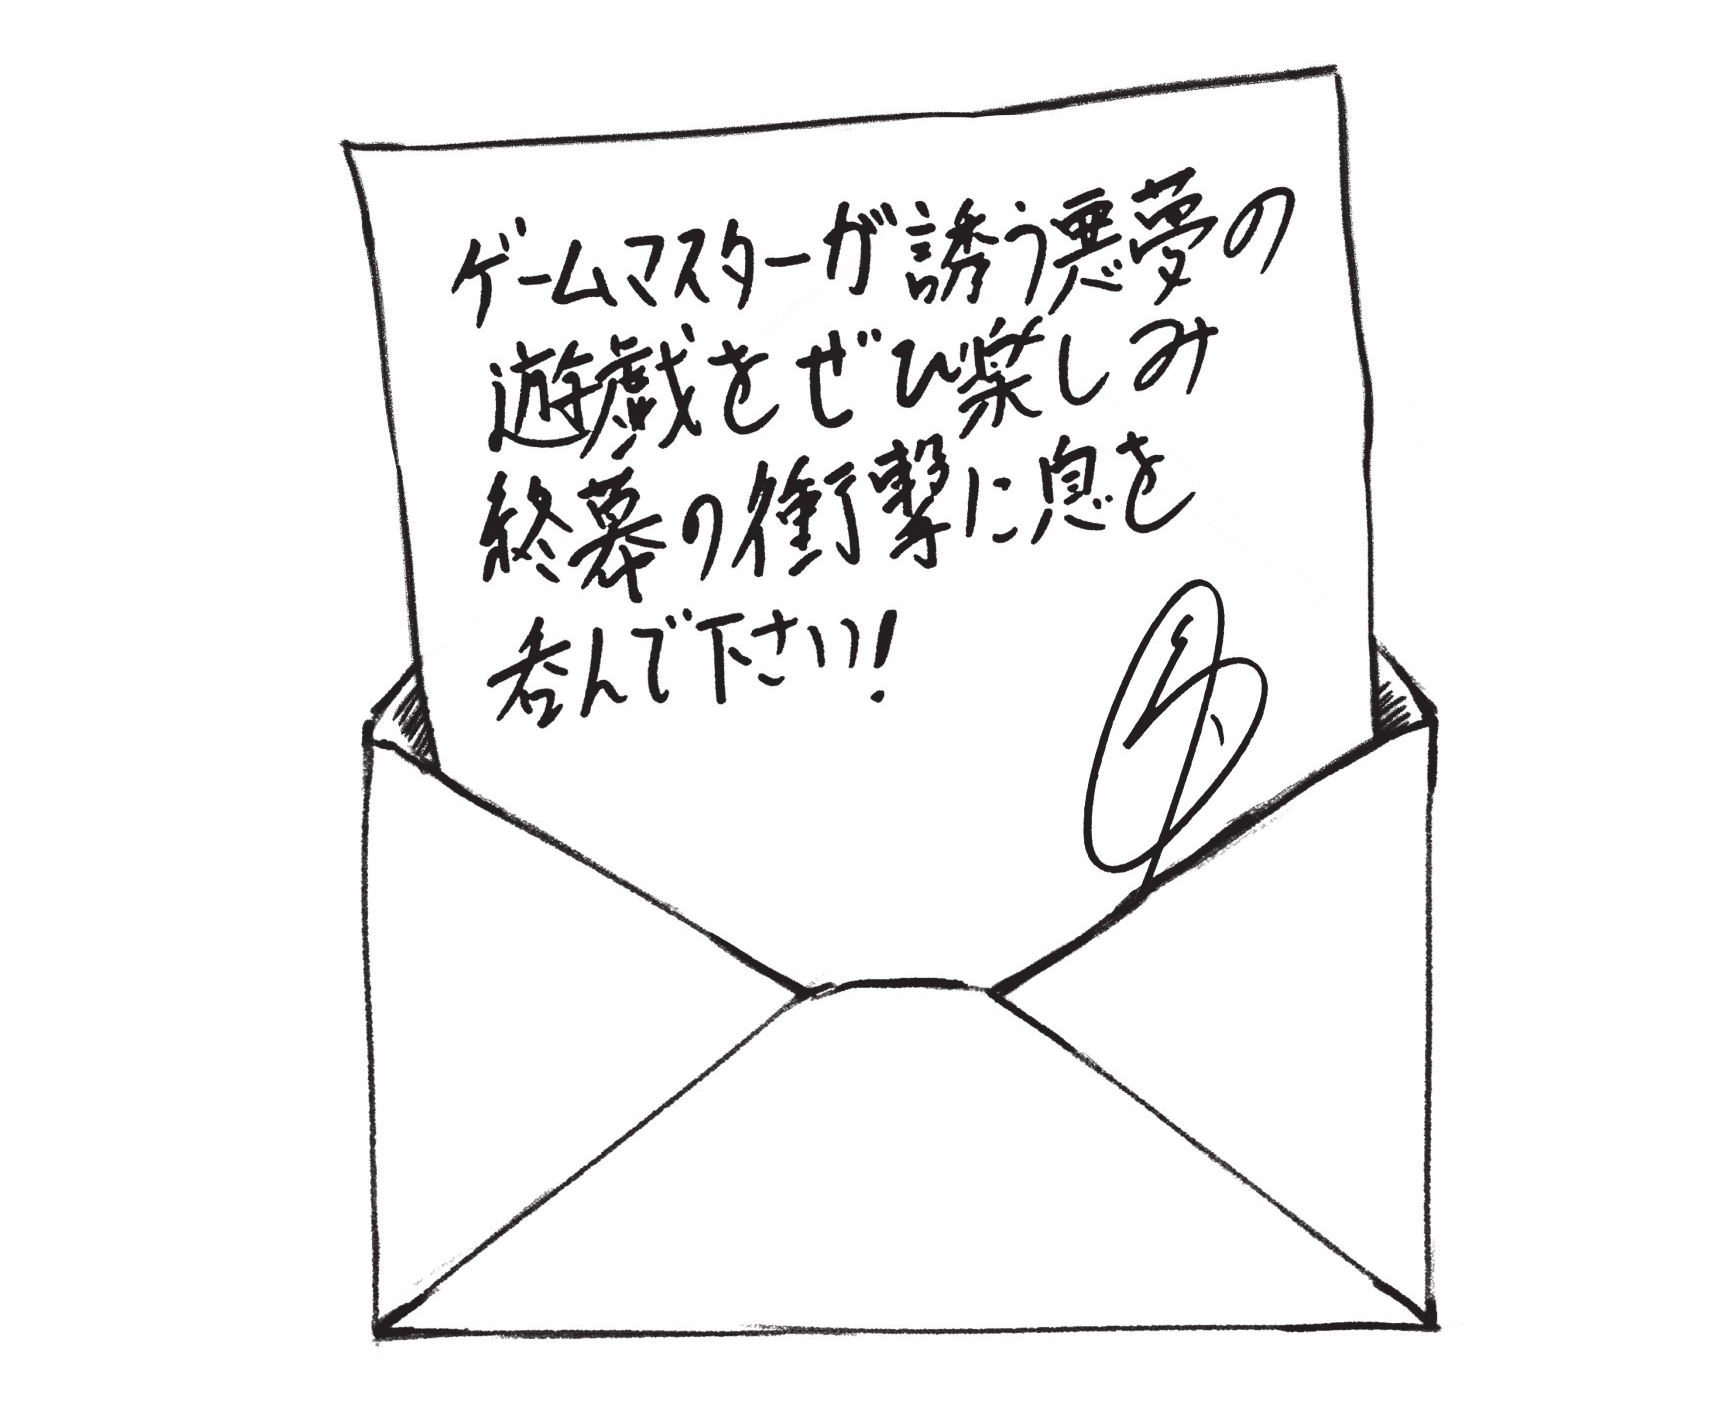 ゲームマスターが誘う悪夢の
遊戯をぜひ楽しみ
終幕の衝撃に息を
呑んで下さい!